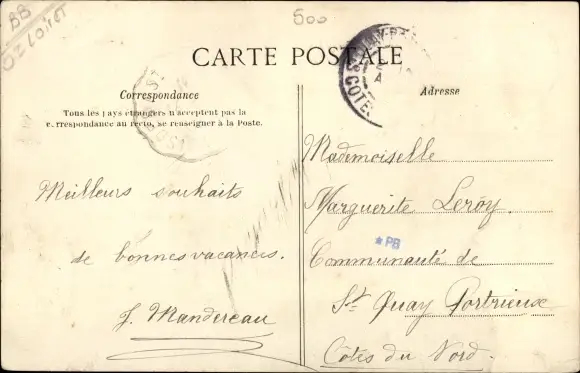 BB
02 LOIRET
500
CARTE POSTALE
Correspondance
Tous les pays étrangers n'acceptent pas la
correspondance au recto, se renseigner à la Poste.
Meilleurs souhaits
de bonnes vacances.
J. Mandereau
Adresse
Mademoiselle
Marguerite Leroy.
*PB
Communauté de
St Quay Portrieuse
Côtes du Nord.